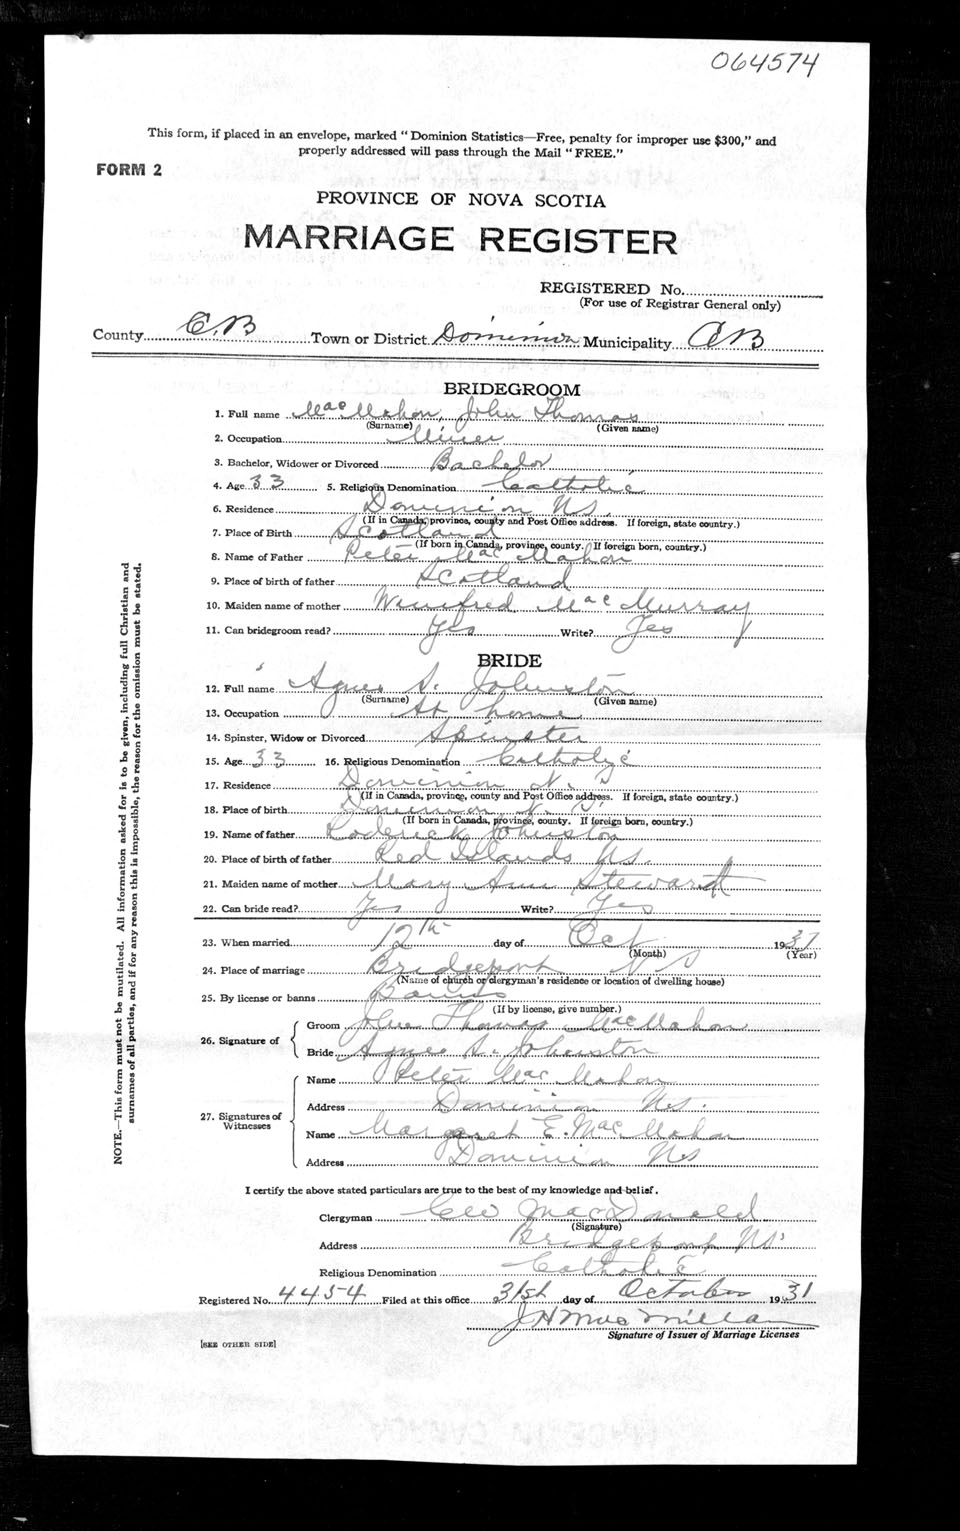 064574
This form, if placed in an envelope, marked "Dominion Statistics—Free, penalty for improper use $300," and
properly addressed will pass through the Mail "FREE."
FORM 2
PROVINCE OF NOVA SCOTIA
MARRIAGE REGISTER
REGISTERED No.
(For use of Registrar General only)
County C.B Town or District Dominion Municipality CB
BRIDEGROOM
1. Full name MacMahon, John Thomas
(Surname) (Given name)
2. Occupation Miner
3. Bachelor, Widower or Divorced Bachelor
4. Age 33 5. Religious Denomination Catholic
6. Residence Dominion N.S.
(If in Canada, province, county and Post Office address. If foreign, state country.)
7. Place of Birth Scotland
(If born in Canada, province, county. If foreign born, country.)
8. Name of Father Peter MacMahon
9. Place of birth of father Scotland
10. Maiden name of mother Winifred MacMurray
11. Can bridegroom read? Yes Write? Yes
BRIDE
12. Full name Agnes S. Johnston
(Surname) (Given name)
13. Occupation At home
14. Spinster, Widow or Divorced Spinster
15. Age 33 16. Religious Denomination Catholic
17. Residence Dominion N.S
(If in Canada, province, county and Post Office address. If foreign, state country.)
18. Place of birth Dominion N.S.
(If born in Canada, province, county. If foreign born, country.)
19. Name of father Roderick Johnston
20. Place of birth of father Red Islands NS.
21. Maiden name of mother Mary Ann Stewart
22. Can bride read? Yes Write? Yes
23. When married 12th day of Oct 1931
(Month) (Year)
24. Place of marriage Bridgeport NS
(Name of church or clergyman's residence or location of dwelling house)
25. By license or banns Banns
(If by license, give number.)
26. Signature of Groom John Thomas MacMahon
Bride Agnes S. Johnston
27. Signatures of Witnesses Name Peter MacMahon
Address Dominion NS.
Name Margaret E. MacMahon
Address Dominion NS
I certify the above stated particulars are true to the best of my knowledge and belief.
Clergyman Geo MacDonald
(Signature)
Address Bridgeport NS.
Religious Denomination Catholic
Registered No. 4454 Filed at this office 31st day of October 1931
J H MacMillan
Signature of Issuer of Marriage Licenses
[SEE OTHER SIDE]
NOTE.—This form must not be mutilated. All information asked for is to be given, including full Christian and
surnames of all parties, and if for any reason this is impossible, the reason for the omission must be stated.